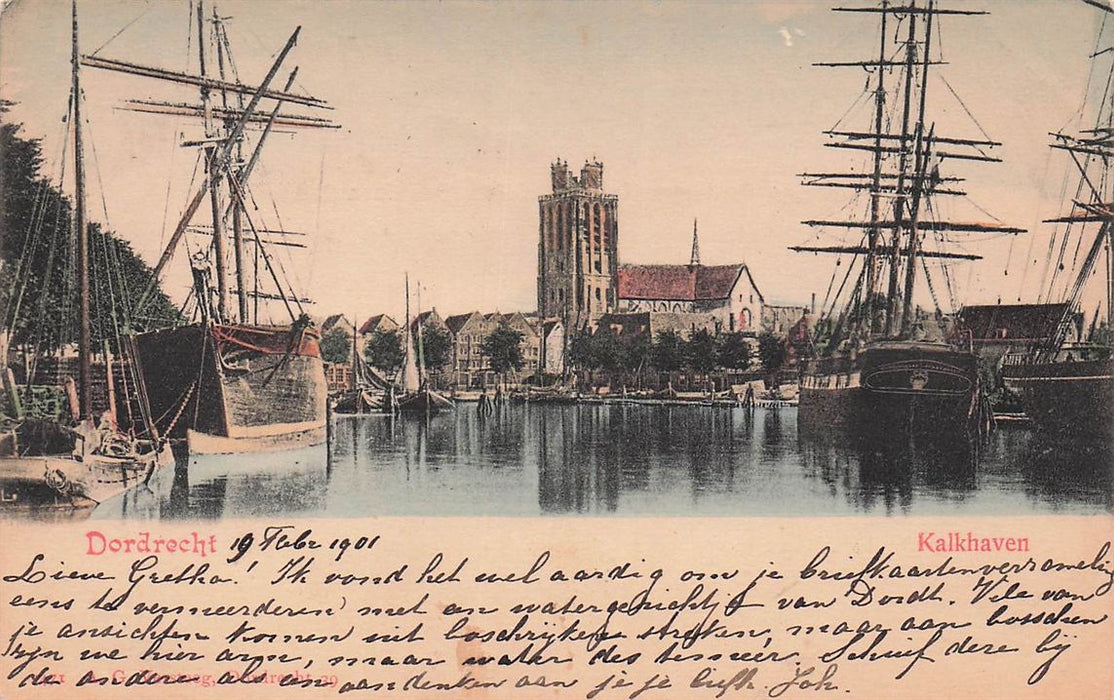 Dordrecht 19 Febr 1901 Kalkhaven
Lieve Gretha! Ik vond het wel aardig om je briefkaartenverzameling
eens te vermeerderen met een watergezichtje van Dordt. Vele van
je ansichten komen uit boschrijke streken, maar aan bosschen
zijn we hier arm, maar water des te meer. Schuif deze bij
de andere als een aandenken aan je je liefh. Joh.